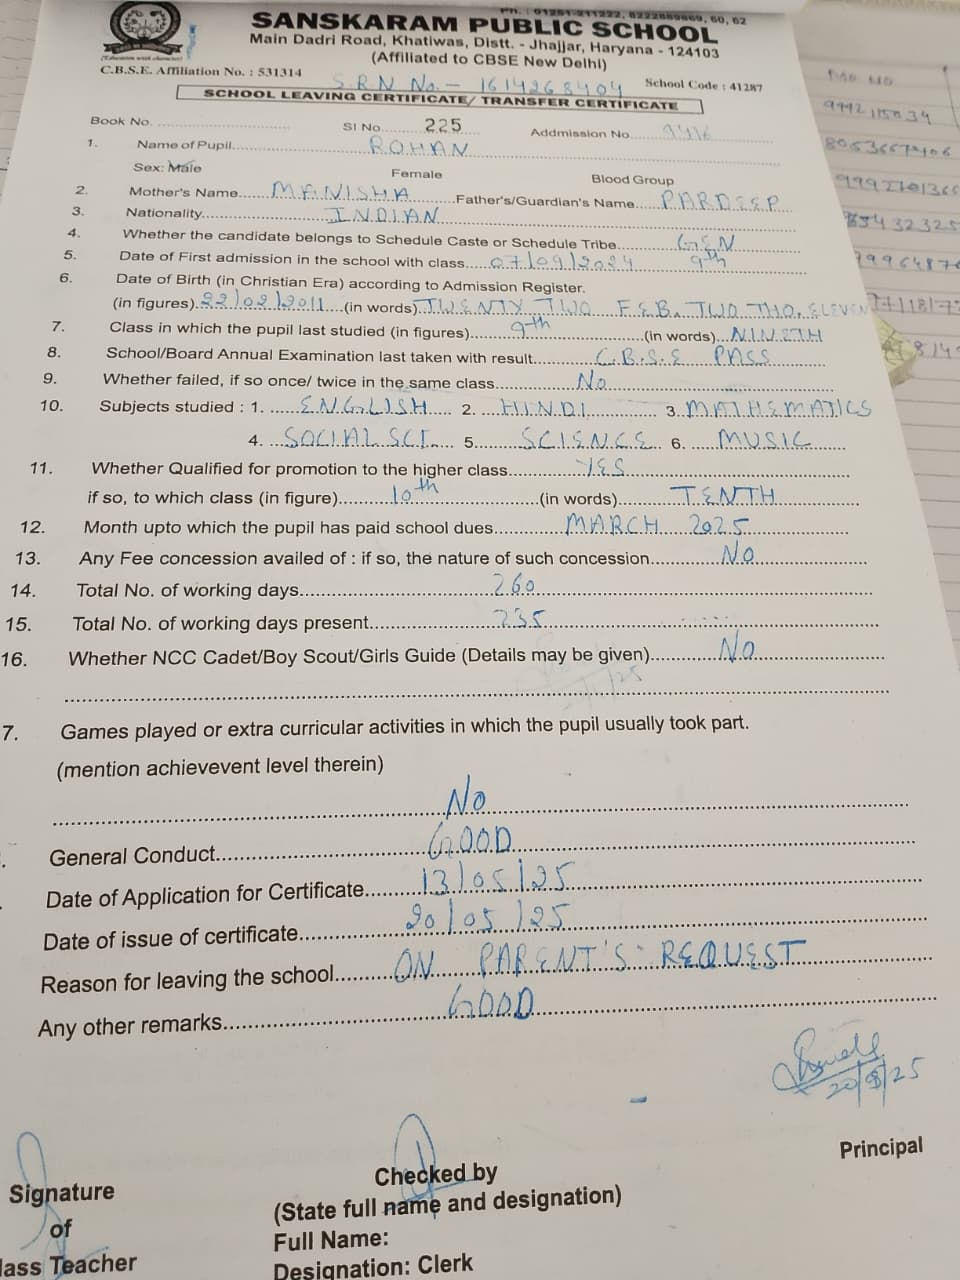 Ph. : 01251-211222, 8222889869, 60, 62
SANSKARAM PUBLIC SCHOOL
Main Dadri Road, Khatiwas, Distt. - Jhajjar, Haryana - 124103
(Affiliated to CBSE New Delhi)
C.B.S.E. Affiliation No. : 531314
S.R.N No. - 1614268404
School Code : 41287
SCHOOL LEAVING CERTIFICATE/ TRANSFER CERTIFICATE
Book No. Sl No. 225 Addmission No. 9416
1. Name of Pupil ROHAN
Sex: Male Female Blood Group
2. Mother's Name MANISHA Father's/Guardian's Name PARDEEP
3. Nationality INDIAN
4. Whether the candidate belongs to Schedule Caste or Schedule Tribe GEN
5. Date of First admission in the school with class 07/09/2024 9th
6. Date of Birth (in Christian Era) according to Admission Register.
(in figures) 22/02/2011 (in words) TWENTY TWO FEB. TWO THO. ELEVEN
7. Class in which the pupil last studied (in figures) 9th (in words) NINETH
8. School/Board Annual Examination last taken with result C.B.S.E PASS
9. Whether failed, if so once/ twice in the same class No
10. Subjects studied : 1. ENGLISH 2. HINDI 3. MATHEMATICS
4. SOCIAL SCI. 5. SCIENCE 6. MUSIC
11. Whether Qualified for promotion to the higher class YES
if so, to which class (in figure) 10th (in words) TENTH
12. Month upto which the pupil has paid school dues MARCH 2025
13. Any Fee concession availed of : if so, the nature of such concession No
14. Total No. of working days 260
15. Total No. of working days present 235
16. Whether NCC Cadet/Boy Scout/Girls Guide (Details may be given) No
7. Games played or extra curricular activities in which the pupil usually took part.
(mention achievevent level therein)
No
General Conduct GOOD
Date of Application for Certificate 13/05/25
Date of issue of certificate 20/05/25
Reason for leaving the school ON PARENT'S REQUEST
Any other remarks GOOD
Principal
Signature
of
lass Teacher
Checked by
(State full name and designation)
Full Name:
Designation: Clerk